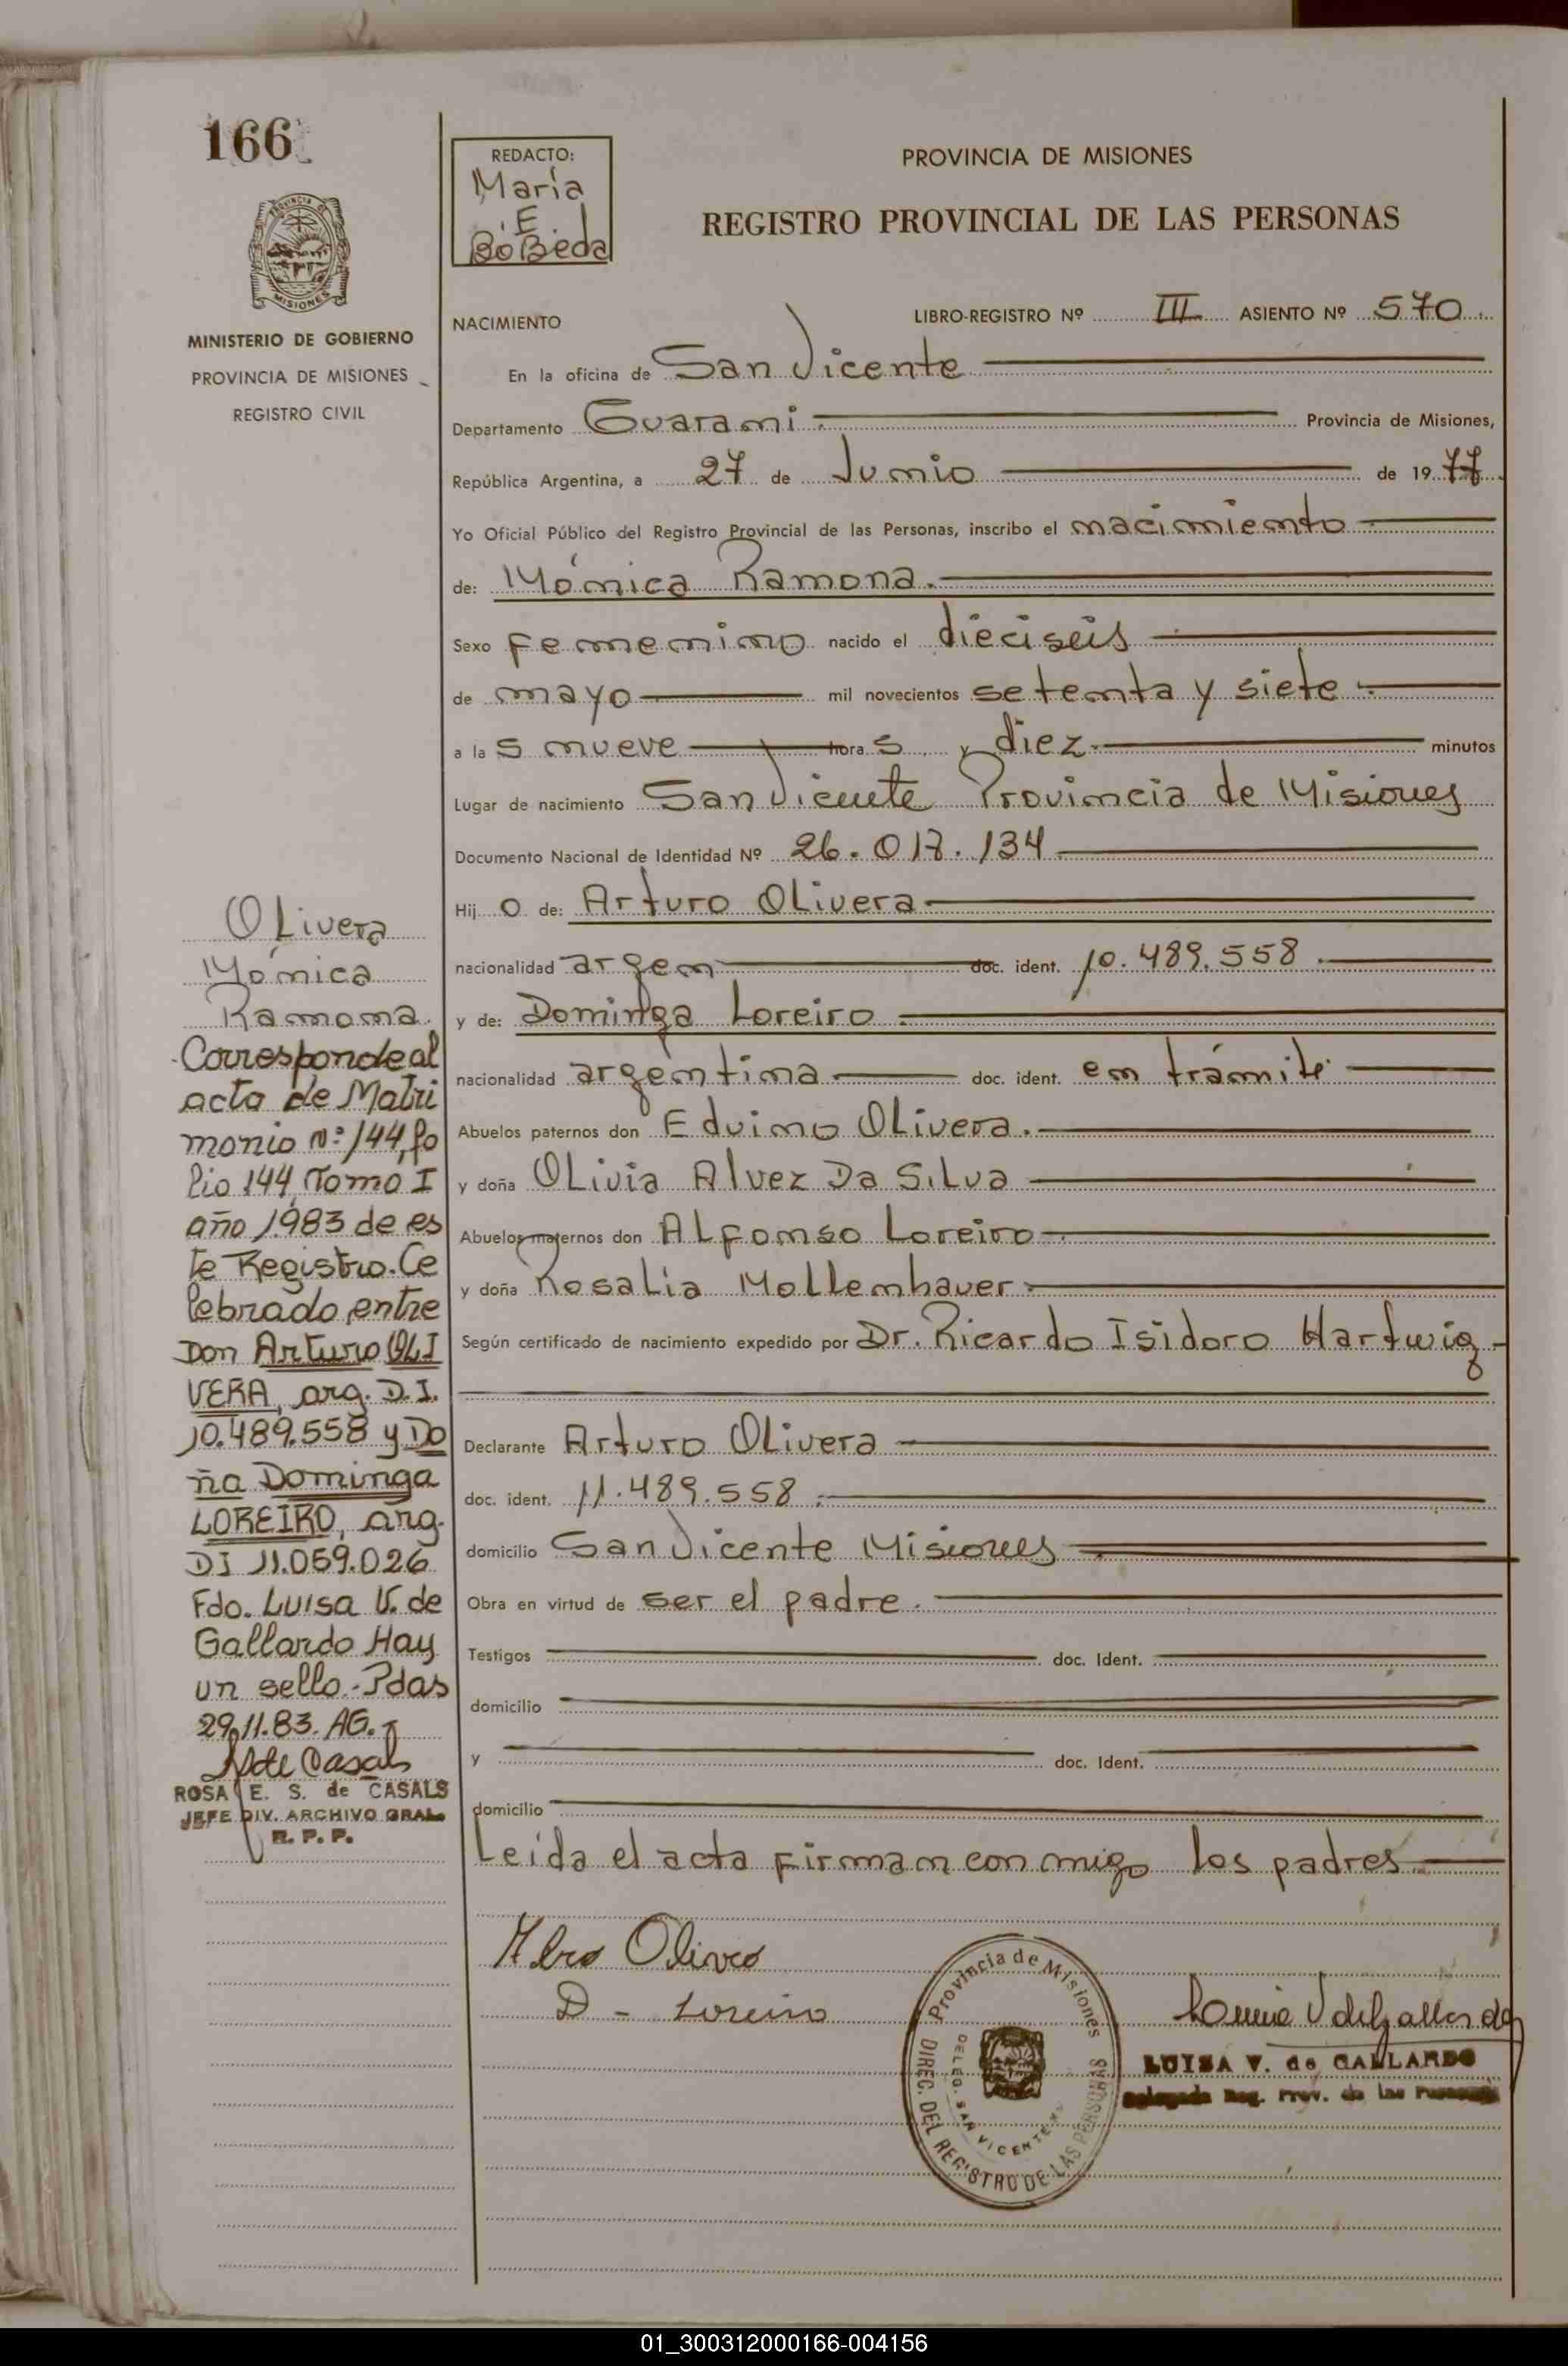 166
MINISTERIO DE GOBIERNO
PROVINCIA DE MISIONES
REGISTRO CIVIL
REDACTO:
María
E.
BoBeda
PROVINCIA DE MISIONES
REGISTRO PROVINCIAL DE LAS PERSONAS
NACIMIENTO
LIBRO-REGISTRO Nº III ASIENTO Nº 570
En la oficina de San Vicente
Departamento Guarami Provincia de Misiones,
República Argentina, a 27 de Junio de 1977
Yo Oficial Público del Registro Provincial de las Personas, inscribo el nacimiento
de: Mónica Ramona.
Sexo femenino nacido el dieciseis
de mayo mil novecientos setenta y siete
a las nueve horas y diez minutos
Lugar de nacimiento San Vicente Provincia de Misiones
Documento Nacional de Identidad Nº 26.017.134
Hijo de: Arturo Olivera
nacionalidad argen doc. ident. 10.489.558
y de: Dominga Loreiro
nacionalidad argentina doc. ident. en trámite
Abuelos paternos don Eduino Olivera.
y doña Olivia Alvez Da Silva
Abuelos maternos don Alfonso Loreiro
y doña Rosalia Mollenhauer
Según certificado de nacimiento expedido por Dr. Ricardo Isidoro Hartwig
Declarante Arturo Olivera
doc. ident. 11.489.558
domicilio San Vicente Misiones
Obra en virtud de ser el padre.
Testigos doc. Ident.
domicilio
y doc. Ident.
domicilio
Leida el acta firman con migo los padres
Olivera
D - Loreiro
LUISA V. de GALLARDO
Delegada Reg. Prov. de las Personas
Provincia de Misiones
DIREC. DEL REGISTRO DE LAS PERSONAS
DELEG. SAN VICENTE
Olivera
Mónica
Ramona.
Corresponde al
acta de Matri
monio Nº 144, fo
lio 144, Tomo I
año 1.983 de es
te Registro. Ce
lebrado entre
Don Arturo OLI
VERA, arg. D.I.
10.489.558 y Do
ña Dominga
LOREIRO, arg.
DI 11.059.026
Fdo. Luisa V. de
Gallardo Hay
un sello.- Pdas
29.11.83. AG.
ROSA E. S. de CASALS
JEFE DIV. ARCHIVO GRAL.
R. P. P.
01_300312000166-004156